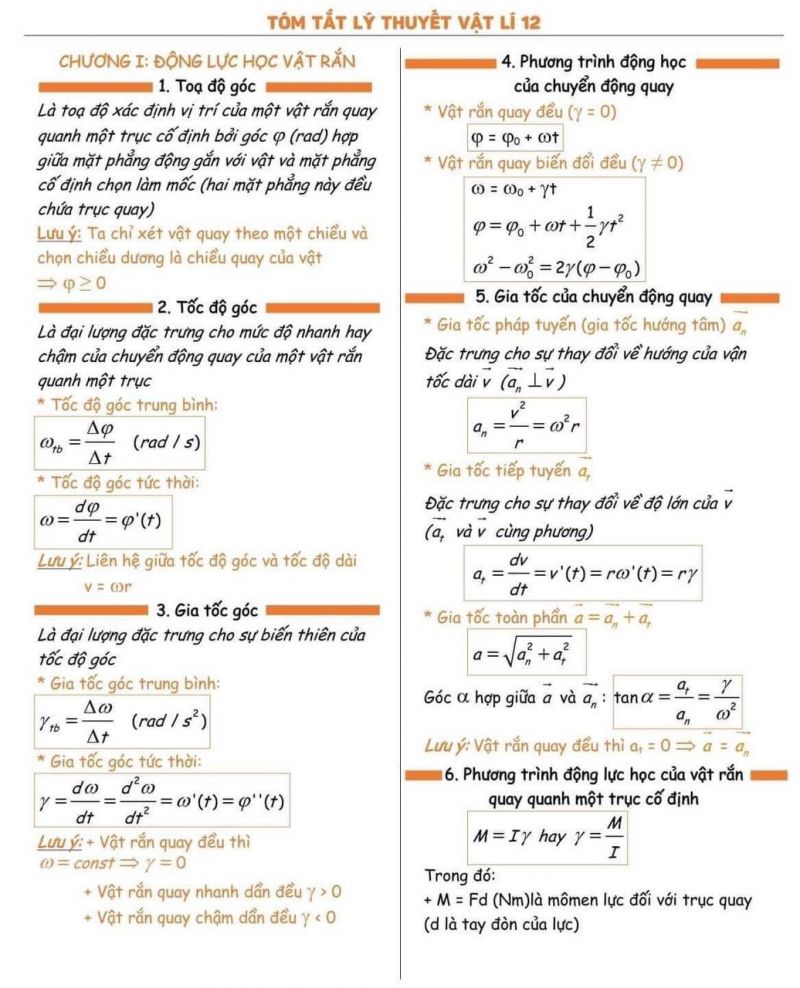 TÓM TẮT LÝ THUYẾT VẬT LÍ 12
CHƯƠNG I: ĐỘNG LỰC HỌC VẬT RẮN
1. Toạ độ góc
Là toạ độ xác định vị trí của một vật rắn quay
quanh một trục cố định bởi góc φ (rad) hợp
giữa mặt phẳng động gắn với vật và mặt phẳng
cố định chọn làm mốc (hai mặt phẳng này đều
chứa trục quay)
Lưu ý: Ta chỉ xét vật quay theo một chiều và
chọn chiều dương là chiều quay của vật
⇒ φ ≥ 0
2. Tốc độ góc
Là đại lượng đặc trưng cho mức độ nhanh hay
chậm của chuyển động quay của một vật rắn
quanh một trục
* Tốc độ góc trung bình:
ω_tb = Δφ/Δt (rad / s)
* Tốc độ góc tức thời:
ω = dφ/dt = φ'(t)
Lưu ý: Liên hệ giữa tốc độ góc và tốc độ dài
v = ωr
3. Gia tốc góc
Là đại lượng đặc trưng cho sự biến thiên của
tốc độ góc
* Gia tốc góc trung bình:
γ_tb = Δω/Δt (rad / s²)
* Gia tốc góc tức thời:
γ = dω/dt = d²ω/dt² = ω'(t) = φ''(t)
Lưu ý: + Vật rắn quay đều thì
ω = const ⇒ γ = 0
+ Vật rắn quay nhanh dần đều γ > 0
+ Vật rắn quay chậm dần đều γ < 0
4. Phương trình động học
của chuyển động quay
* Vật rắn quay đều (γ = 0)
φ = φ₀ + ωt
* Vật rắn quay biến đổi đều (γ ≠ 0)
ω = ω₀ + γt
φ = φ₀ + ωt + 1/2 γt²
ω² − ω₀² = 2γ(φ − φ₀)
5. Gia tốc của chuyển động quay
* Gia tốc pháp tuyến (gia tốc hướng tâm) a⃗ₙ
Đặc trưng cho sự thay đổi về hướng của vận
tốc dài v⃗ (a⃗ₙ ⊥ v⃗)
aₙ = v²/r = ω²r
* Gia tốc tiếp tuyến a⃗ₜ
Đặc trưng cho sự thay đổi về độ lớn của v⃗
(a⃗ₜ và v⃗ cùng phương)
aₜ = dv/dt = v'(t) = rω'(t) = rγ
* Gia tốc toàn phần a⃗ = a⃗ₙ + a⃗ₜ
a = √(aₙ² + aₜ²)
Góc α hợp giữa a⃗ và a⃗ₙ : tan α = aₜ/aₙ = γ/ω²
Lưu ý: Vật rắn quay đều thì aₜ = 0 ⇒ a⃗ = a⃗ₙ
6. Phương trình động lực học của vật rắn
quay quanh một trục cố định
M = Iγ hay γ = M/I
Trong đó:
+ M = Fd (Nm)là mômen lực đối với trục quay
(d là tay đòn của lực)